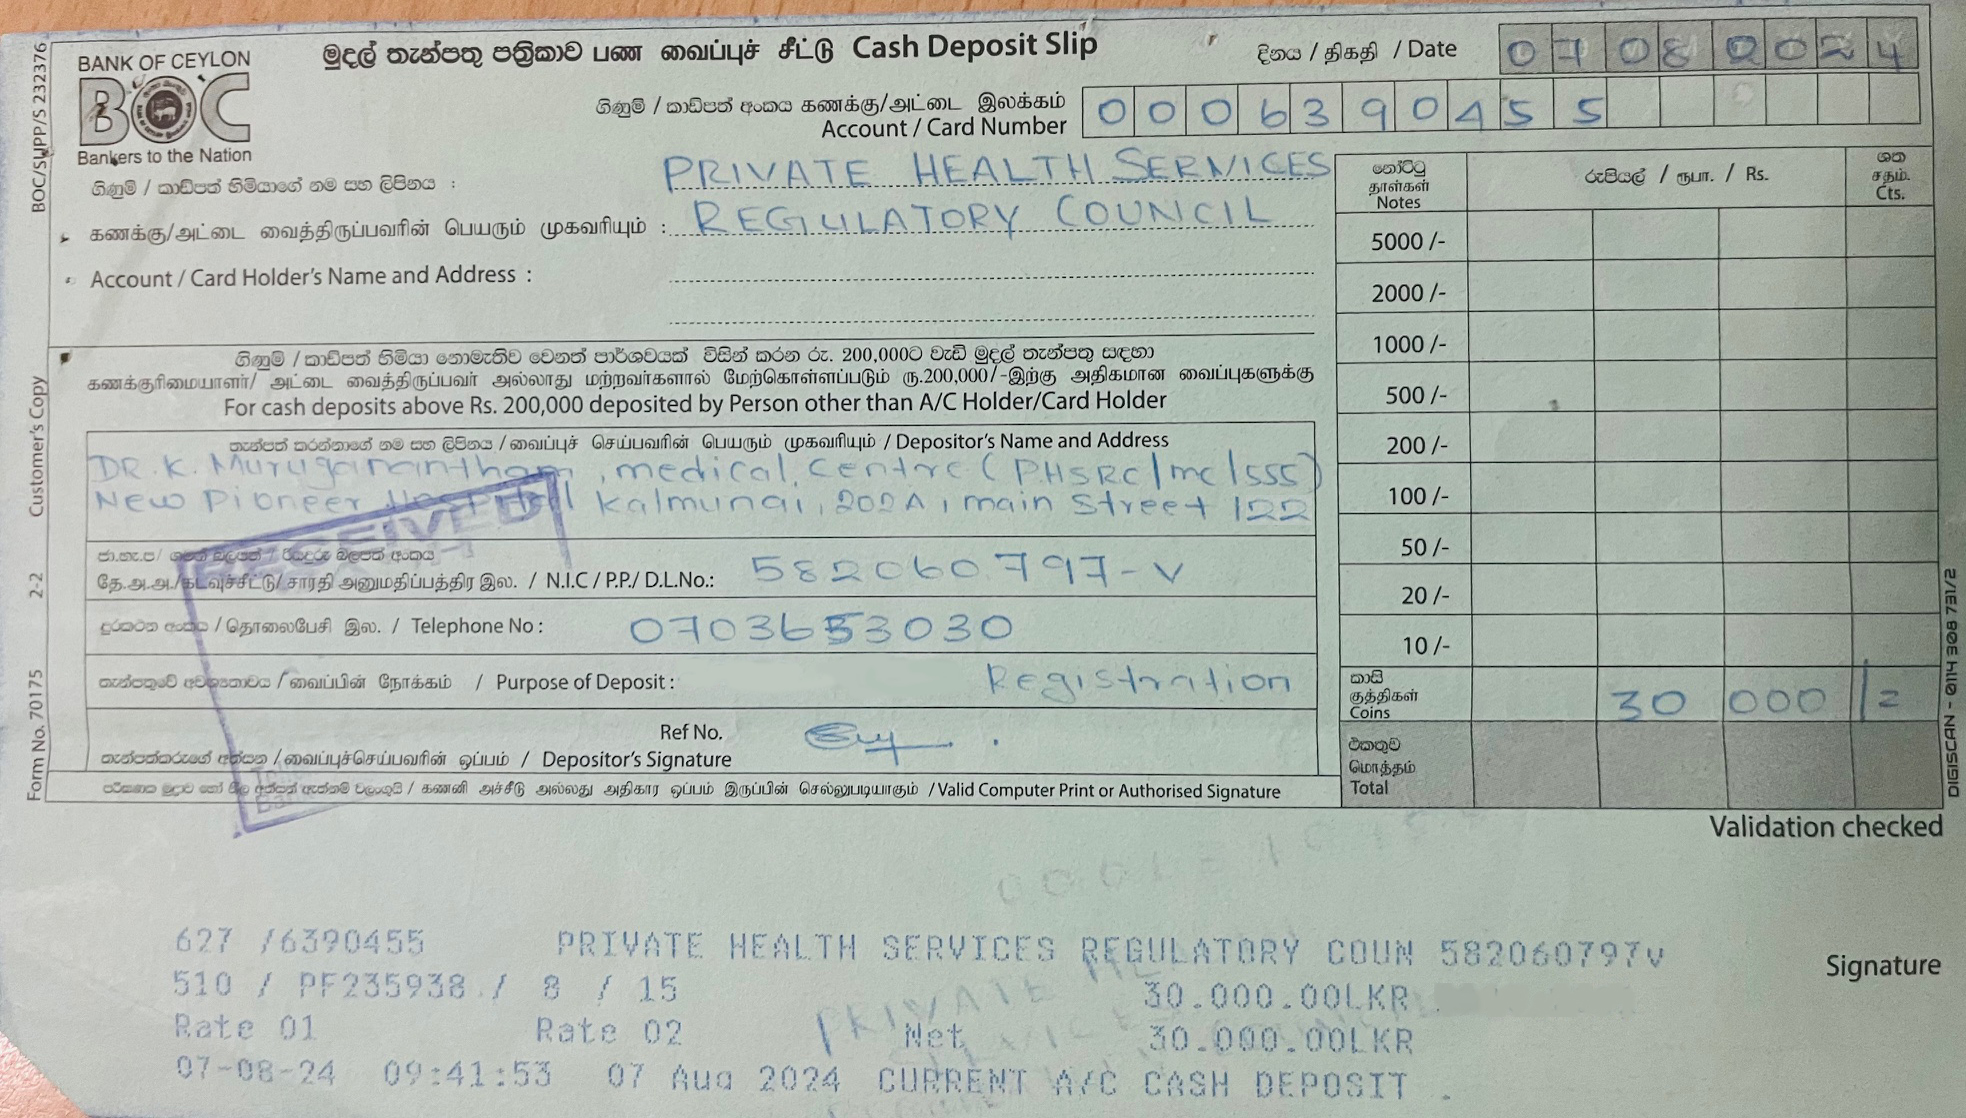 BOC/SUPP/S 232376
Customer's Copy
2-2
Form No. 70175
BANK OF CEYLON
BOC
Bankers to the Nation
මුදල් තැන්පතු පත්‍රිකාව பண வைப்புச் சீட்டு Cash Deposit Slip
දිනය / திகதி / Date 07 08 2024
ගිණුම් / කාඩ්පත් අංකය கணக்கு/அட்டை இலக்கம்
Account / Card Number 0006390455
ගිණුම් / කාඩ්පත් හිමියාගේ නම සහ ලිපිනය : PRIVATE HEALTH SERVICES
கணக்கு/அட்டை வைத்திருப்பவரின் பெயரும் முகவரியும் : REGULATORY COUNCIL
Account / Card Holder's Name and Address :
ගිණුම් / කාඩ්පත් හිමියා නොමැතිව වෙනත් පාර්ශවයක් විසින් කරන රු. 200,000ට වැඩි මුදල් තැන්පතු සඳහා
கணக்குரிமையாளர்/ அட்டை வைத்திருப்பவர் அல்லாது மற்றவர்களால் மேற்கொள்ளப்படும் ரூ.200,000/-இற்கு அதிகமான வைப்புகளுக்கு
For cash deposits above Rs. 200,000 deposited by Person other than A/C Holder/Card Holder
තැන්පත් කරන්නාගේ නම සහ ලිපිනය / வைப்புச் செய்பவரின் பெயரும் முகவரியும் / Depositor's Name and Address
DR. K. Muruganantham, medical centre (PHSRC/mc/555)
New Pioneer Hospital Kalmunai, 202A, main street 122
RECEIVED
ජා.හැ.ප/ රියදුරු බලපත් අංකය
தே.அ.அ./கடவுச்சீட்டு/சாரதி அனுமதிப்பத்திர இல. / N.I.C / P.P./ D.L.No.: 582060797-V
දුරකථන අංකය / தொலைபேசி இல. / Telephone No : 0703653030
තැන්පතුවේ අවශ්‍යතාවය / வைப்பின் நோக்கம் / Purpose of Deposit : Registration
Ref No.
තැන්පත්කරුගේ අත්සන / வைப்புச்செய்பவரின் ஒப்பம் / Depositor's Signature
கணனி அச்சீடு அல்லது அதிகார ஒப்பம் இருப்பின் செல்லுபடியாகும் / Valid Computer Print or Authorised Signature
නෝට්ටු
தாள்கள்
Notes
රුපියල් / ரூபா. / Rs.
ශත
சதம்.
Cts.
5000 /-
2000 /-
1000 /-
500 /-
200 /-
100 /-
50 /-
20 /-
10 /-
කාසි
குத்திகள்
Coins
30 000 /=
එකතුව
மொத்தம்
Total
DIGISCAN - 0114 308 731/2
Validation checked
Signature
627 /6390455 PRIVATE HEALTH SERVICES REGULATORY COUN 582060797v
510 / PF235938 / 8 / 15 30.000.00LKR
Rate 01 Rate 02 Net 30.000.00LKR
07-08-24 09:41:53 07 Aug 2024 CURRENT A/C CASH DEPOSIT .